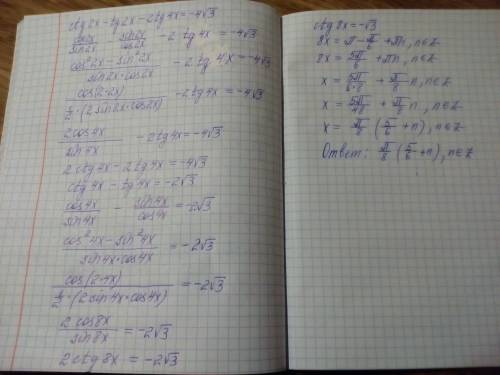 ctg2x - tg2x - 2tg4x = -4√3
cos2x/sin2x - sin2x/cos2x - 2tg4x = -4√3
(cos²2x - sin²2x)/(sin2x·cos2x) - 2tg4x = -4√3
cos(2·2x)/(½·(2sin2x·cos2x)) - 2tg4x = -4√3
2cos4x/sin4x - 2tg4x = -4√3
2ctg4x - 2tg4x = -4√3
ctg4x - tg4x = -2√3
cos4x/sin4x - sin4x/cos4x = -2√3
(cos²4x - sin²4x)/(sin4x·cos4x) = -2√3
cos(2·4x)/(½·(2sin4x·cos4x)) = -2√3
2cos8x/sin8x = -2√3
2ctg8x = -2√3
ctg8x = -√3
8x = π - π/6 + πn, n∈Z
8x = 5π/6 + πn, n∈Z
x = 5π/(6·8) + π/8 n, n∈Z
x = 5π/48 + π/8 n, n∈Z
x = π/8 (5/6 + n), n∈Z
Ответ: π/8 (5/6 + n), n∈Z